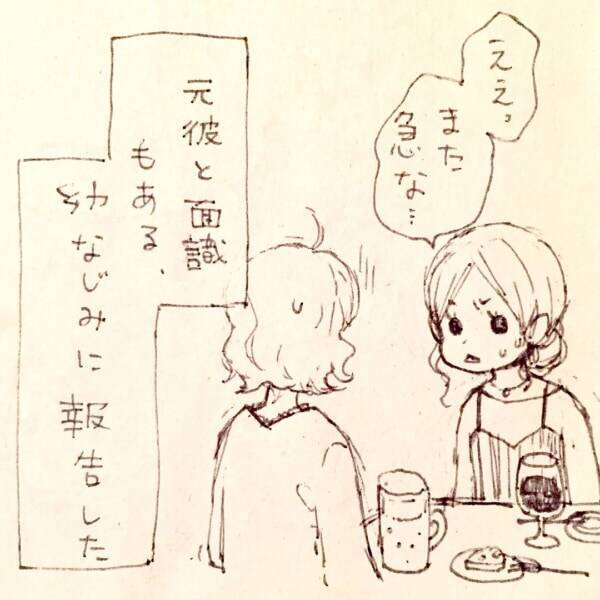 ええっ
また
急な…
元彼と面識
もある、
幼なじみに報告した